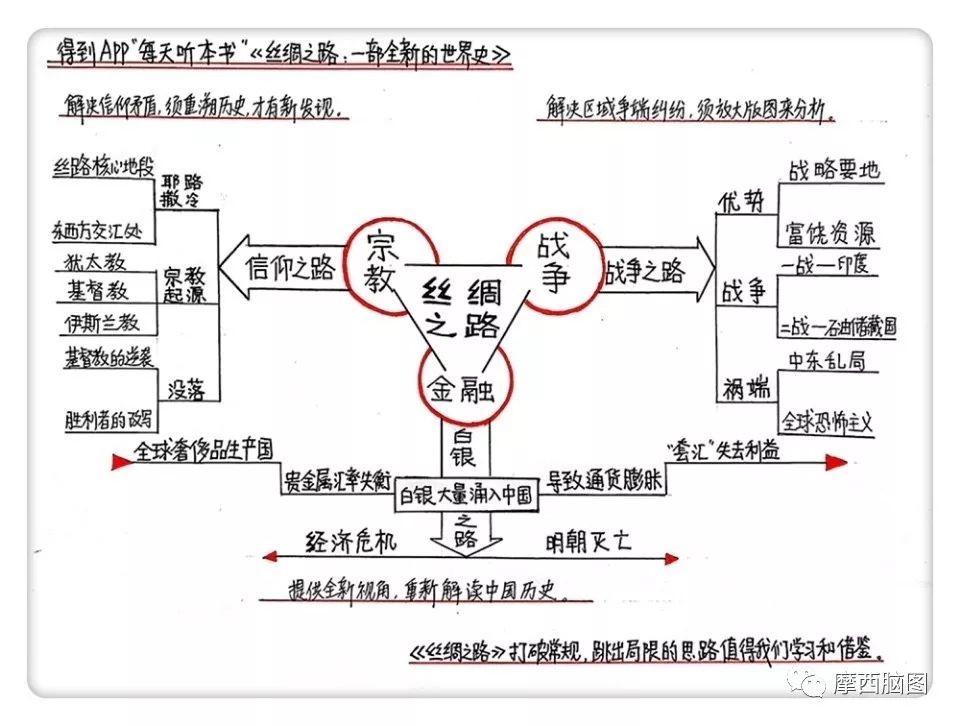 得到APP"每天听本书"《丝绸之路：一部全新的世界史》
解决信仰矛盾，须重溯历史，才有新发现。
解决区域争端纠纷，须放大版图来分析。
丝路核心地段
东西方交汇处
耶路
撒冷
犹太教
基督教
伊斯兰教
宗教
起源
基督教的逆袭
胜利者的改写
没落
信仰之路
宗
教
丝绸
之路
战
争
战争之路
优势
战略要地
富饶资源
战争
一战—印度
二战—石油储藏国
祸端
中东乱局
全球恐怖主义
金融
白
银
全球奢侈品生产国
贵金属汇率失衡
白银大量涌入中国
导致通货膨胀
"套汇"失去利益
之
路
经济危机
明朝灭亡
提供全新视角，重新解读中国历史。
《丝绸之路》打破常规，跳出局限的思路值得我们学习和借鉴。
摩西脑图